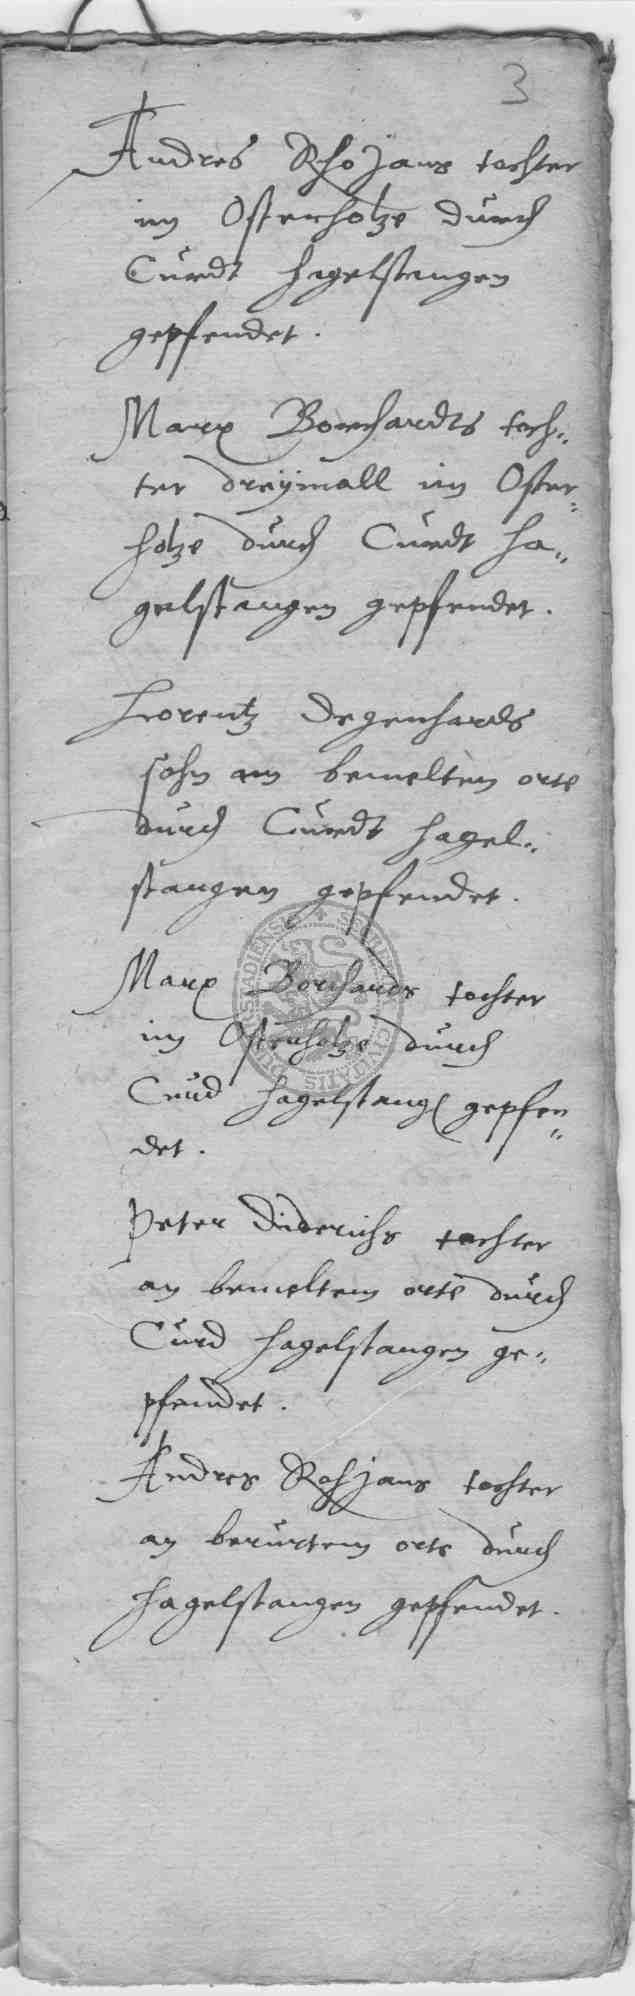 3
Andres Rho Jans tochter
im Osterholtze durch
Curdt Hagelstangen
gepfendet.
Marx Borchardts toch„
ter dreymall im Oster„
holtze durch Curdt Ha„
gelstangen gepfendet.
Lorentz Degenhards
sohn am bemelten orte
durch Curdt Hagel„
stangen gepfendet.
Marx Borchards tochter
im Osterholtze durch
Curd Hagelstang gepfen„
det.
Peter Diderichs tochter
an bemeltem orte durch
Curd Hagelstangen ge„
pfendet.
Andres Rohjans tochter
an berurtem orte durch
Hagelstangen gepfendet.
CIVITATIS